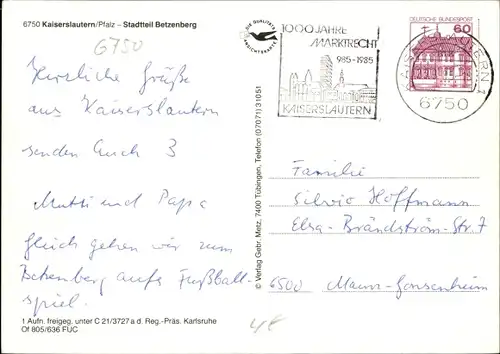 6750 Kaiserslautern/Pfalz – Stadtteil Betzenberg
6750
Herzliche Grüße
aus Kaiserslautern
senden Euch 3
Mutti und Papa
Gleich gehen wir zum
Betzenberg aufs Fußball-
spiel.
1 Aufn. freigeg. unter C 21/3727 a d. Reg.-Präs. Karlsruhe
Of 805/636 FUC
© Verlag Gebr. Metz, 7400 Tübingen, Telefon (07071) 31051
DIE QUALITÄTS
ANSICHTSKARTE
1000 JAHRE
MARKTRECHT
985-1985
KAISERSLAUTERN
DEUTSCHE BUNDESPOST
60
KAISERSLAUTERN 1
6750
Familie
Silvio Hoffmann
Elsa-Brändström-Str. 7
6500 Mainz-Gonsenheim
4€